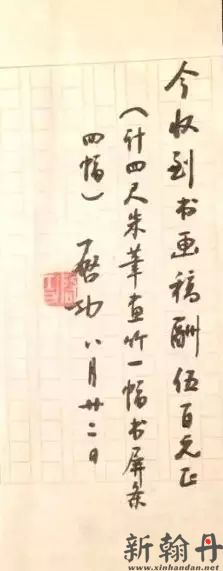 今收到书画稿酬伍百元正
（计四尺朱笔画竹一幅书屏条
四幅）
启功 八月廿二日
启功
新翰丹
www.xinhandan.net